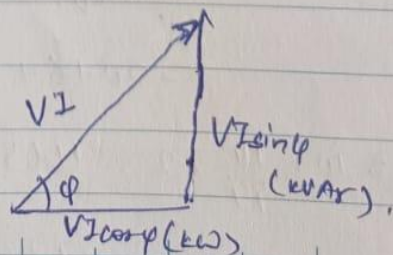 VI
VIsinφ
(kVAr).
φ
VIcosφ(kW)